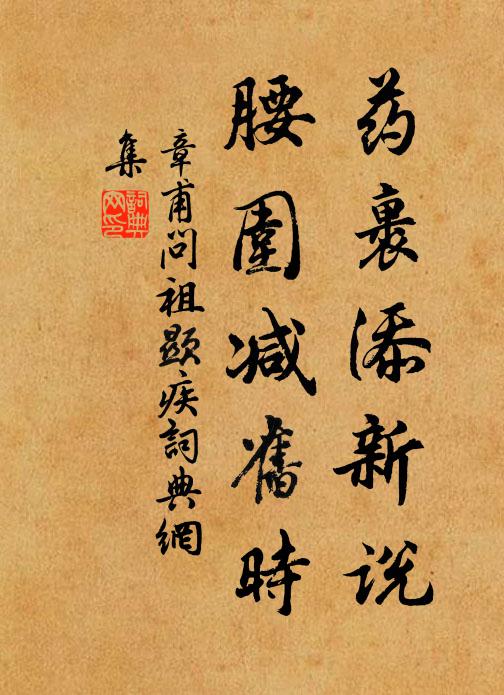 药裹添新説
腰圍减舊時
章甫問祖顯疾詞典網
集
詞典网印